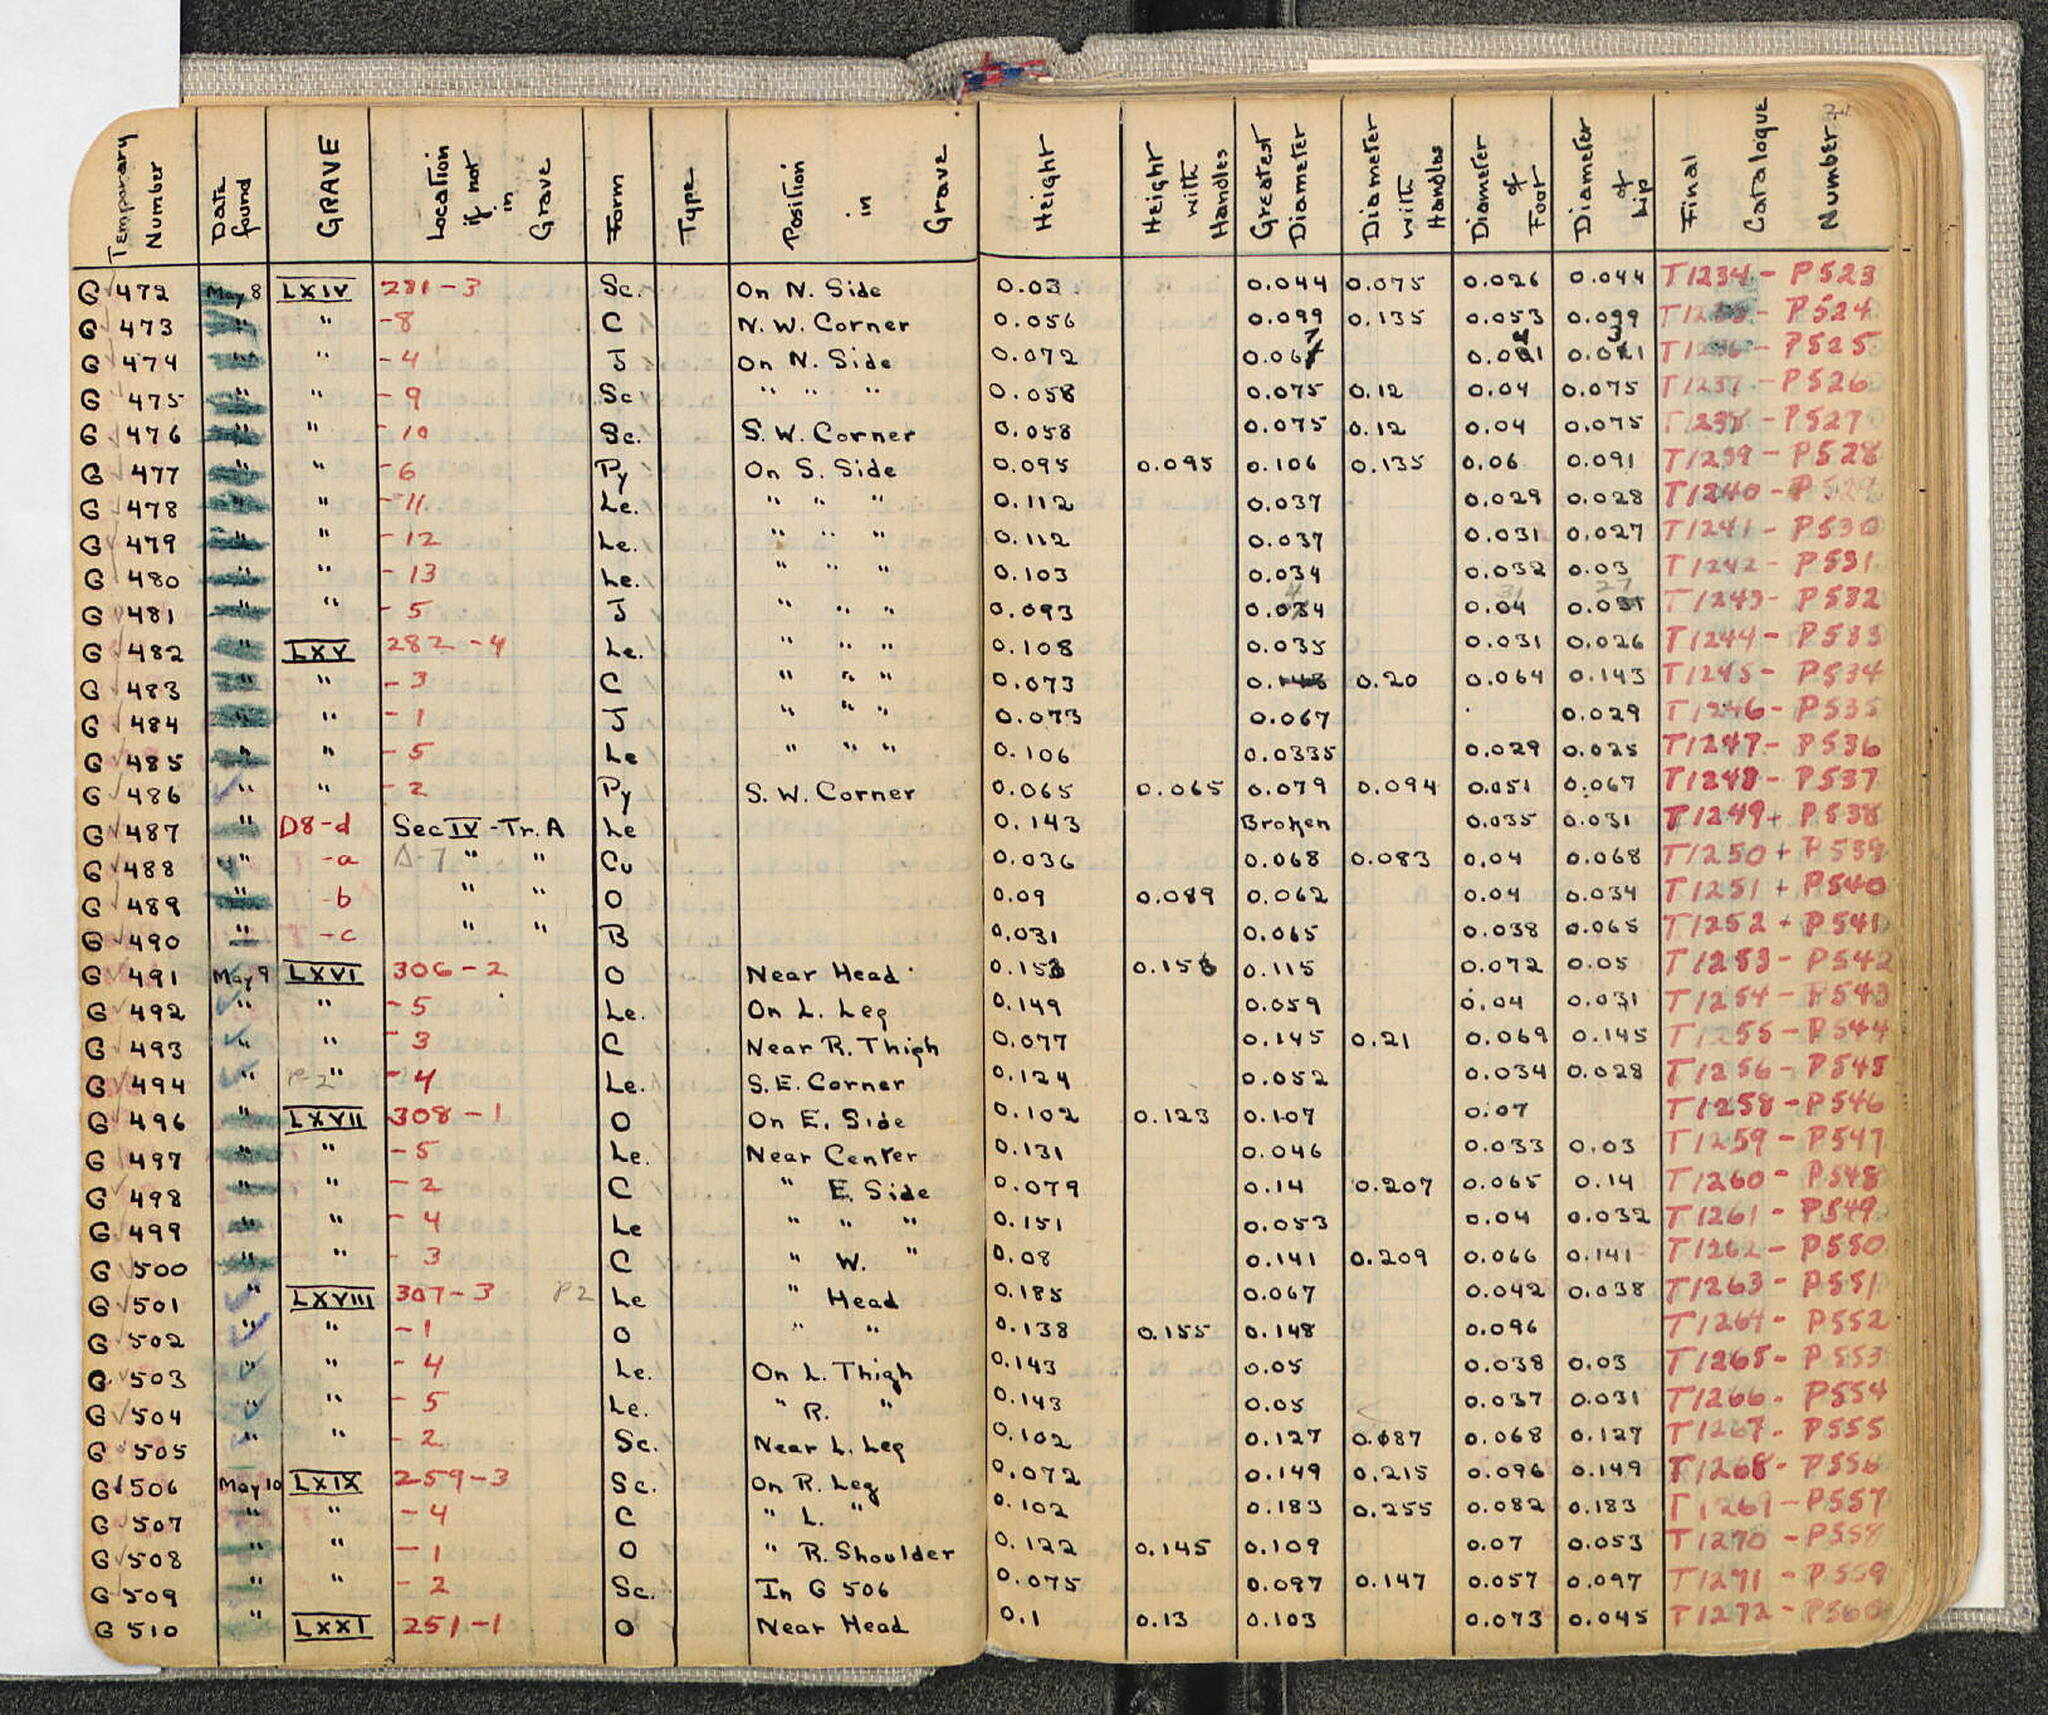 Temporary Number Date found GRAVE Location if not in Grave Form Type Position in Grave Height Height with Handles Greatest Diameter Diameter with Handles Diameter of Foot Diameter of Lip Final Catalogue Number
G 472 May 8 LXIV 281-3 Sc. On N. Side 0.03 0.044 0.075 0.026 0.044 T1234 - P523
G 473 " " -8 C N.W. Corner 0.056 0.099 0.135 0.053 0.099 - P524
G 474 " " -4 J On N. Side 0.072 - P525
G 475 " " -9 Sc " " " 0.058 0.075 0.12 0.04 0.075 T1237 - P526
G 476 " " -10 Sc. S.W. Corner 0.058 0.075 0.12 0.04 0.075 T1238 - P527
G 477 " " -6 Py On S. Side 0.095 0.095 0.106 0.135 0.06 0.091 T1239 - P528
G 478 " " -11 Le. " " " 0.112 0.037 0.029 0.028 T1240 - P529
G 479 " " -12 Le. " " " 0.112 0.037 0.031 0.027 T1241 - P530
G 480 " " -13 Le. " " " 0.103 0.034 0.032 0.03 T1242 - P531
G 481 " " -5 J " " " 0.093 0.04 T1243 - P532
G 482 " LXV 282-4 Le. " " " 0.108 0.035 0.031 0.026 T1244 - P533
G 483 " " -3 C " " " 0.073 0.20 0.064 0.143 T1245 - P534
G 484 " " -1 J " " " 0.073 0.067 0.029 T1246 - P535
G 485 " " -5 Le " " " 0.106 0.0335 0.029 0.025 T1247 - P536
G 486 " " -2 Py S.W. Corner 0.065 0.065 0.079 0.094 0.051 0.067 T1248 - P537
G 487 " D8-d Sec IV - Tr. A Le 0.143 Broken 0.035 0.031 T1249 + P538
G 488 " -a Δ-7 " " Cu 0.036 0.068 0.083 0.04 0.068 T1250 + P539
G 489 " -b " " O 0.09 0.089 0.062 0.04 0.034 T1251 + P540
G 490 " -c " " B 0.031 0.065 0.038 0.065 T1252 + P541
G 491 May 9 LXVI 306-2 O Near Head 0.115 0.072 0.05 T1253 - P542
G 492 " " -5 Le. On L. Leg 0.149 0.059 0.04 0.031 T1254 - P543
G 493 " " -3 C Near R. Thigh 0.077 0.145 0.21 0.069 0.145 T1255 - P544
G 494 " P-2 " -4 Le. S.E. Corner 0.124 0.052 0.034 0.028 T1256 - P545
G 496 " LXVII 308-1 O On E. Side 0.102 0.123 0.107 0.07 T1258 - P546
G 497 " " -5 Le. Near Center 0.131 0.046 0.033 0.03 T1259 - P547
G 498 " " -2 C " E. Side 0.079 0.14 0.207 0.065 0.14 T1260 - P548
G 499 " " -4 Le " " " 0.151 0.053 0.04 0.032 T1261 - P549
G 500 " " -3 C " W. " 0.08 0.141 0.209 0.066 0.141 T1262 - P550
G 501 " LXVIII 307-3 P2 Le " Head 0.185 0.067 0.042 0.038 T1263 - P551
G 502 " " -1 O " " 0.138 0.155 0.148 0.096 T1264 - P552
G 503 " " -4 Le. On L. Thigh 0.143 0.05 0.038 0.03 T1265 - P553
G 504 " " -5 Le. " R. " 0.143 0.05 0.037 0.031 T1266 - P554
G 505 " " -2 Sc. Near L. Leg 0.102 0.127 0.068 0.127 T1267 - P555
G 506 May 10 LXIX 259-3 Sc. On R. Leg 0.072 0.149 0.215 0.096 0.149 T1268 - P556
G 507 " " -4 C " L. " 0.102 0.183 0.255 0.082 0.183 T1269 - P557
G 508 " " -1 O " R. Shoulder 0.122 0.145 0.109 0.07 0.053 T1270 - P558
G 509 " " -2 Sc. In G 506 0.075 0.097 0.147 0.057 0.097 T1271 - P559
G 510 " LXXI 251-1 O Near Head 0.1 0.13 0.103 0.073 0.045 T1272 - P560